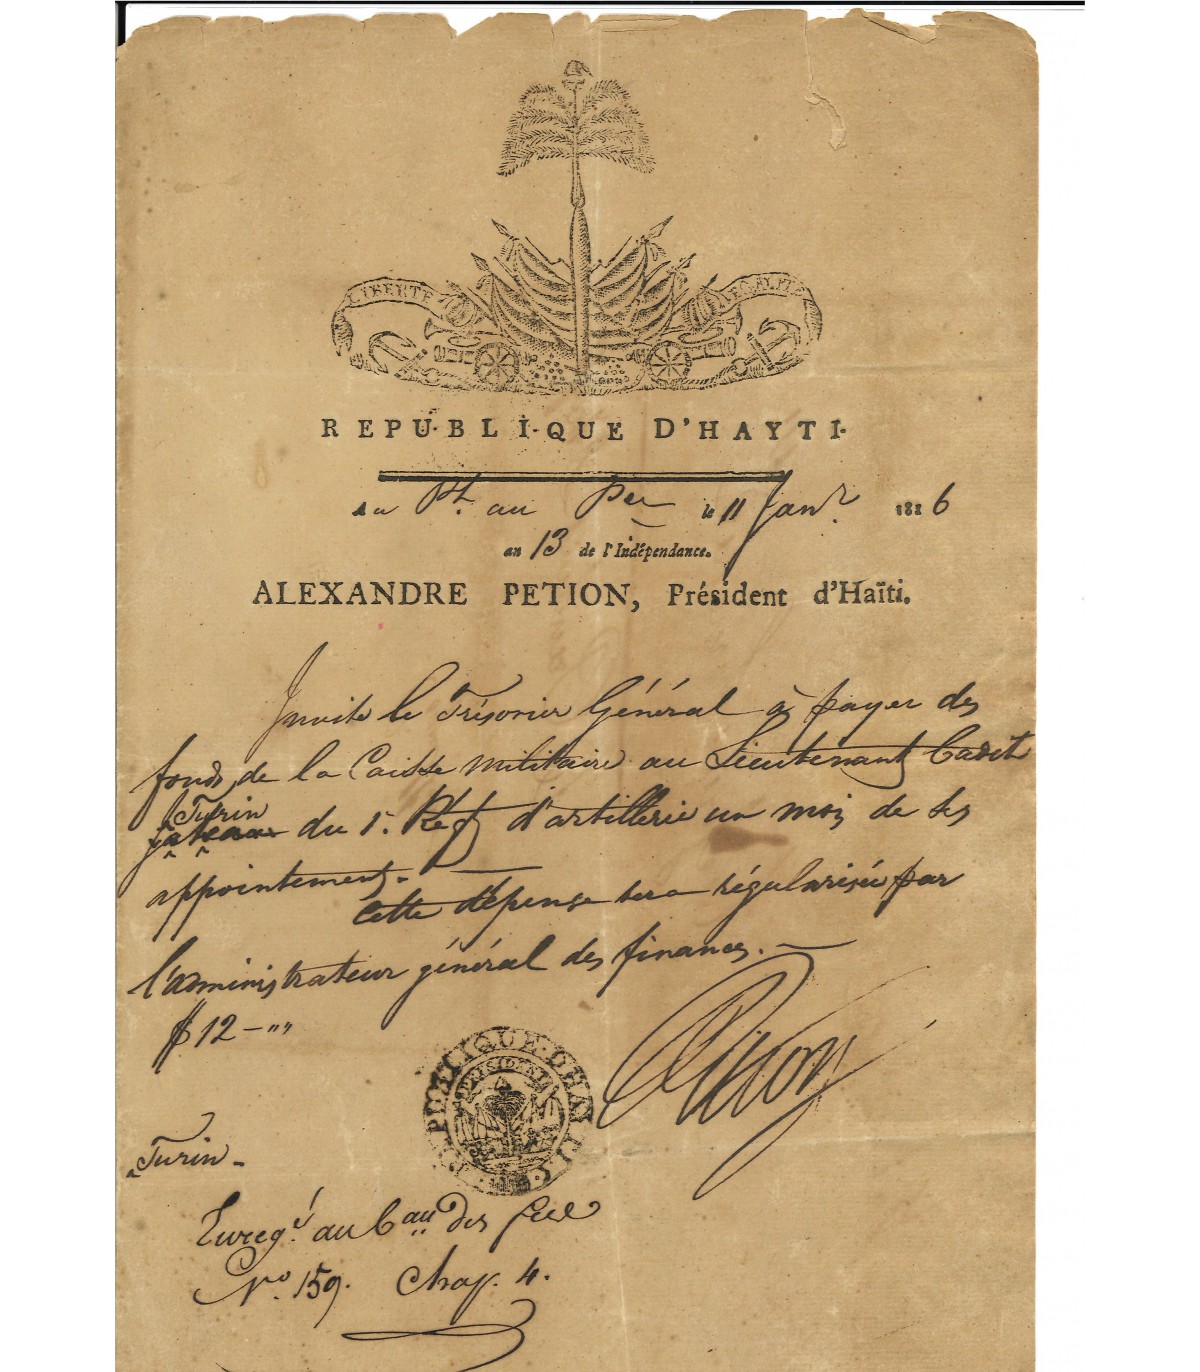 LIBERTÉ EGALITÉ
REPUBLIQUE D'HAYTI.
au Pt. au Pce le 11 Janr. 1816
an 13 de l'Indépendance.
ALEXANDRE PETION, Président d'Haïti.
Invite le Trésorier Général à payer des
fonds de la Caisse militaire au Lieutenant Cadet
Turin
du 1r. Regt d'artillerie un mois de ses
appointements.
Cette dépense sera régularisée par
l'administrateur général des finances.
$ 12 - ""
Petion
REPUBLIQUE D'HAYTI
PRESIDENT
Turin -
Enregé. au bau des
No. 159. Chap. 4.